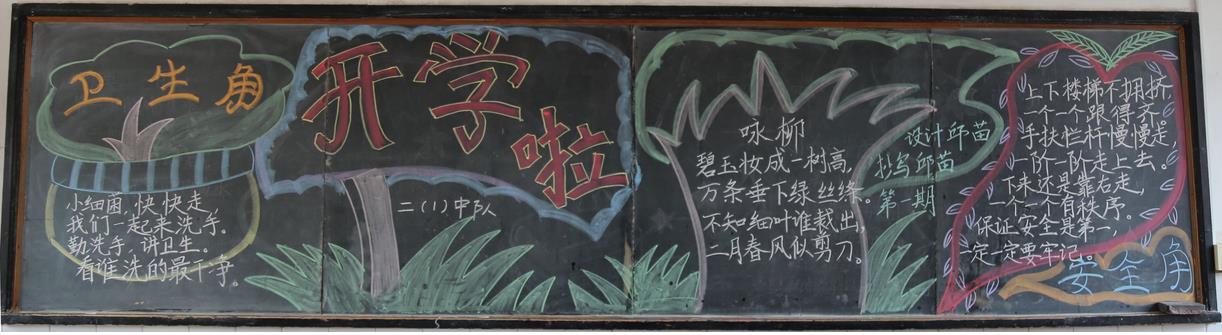 卫生角
小细菌,快快走,
我们一起来洗手。
勤洗手,讲卫生。
看谁洗的最干净。
开学啦
二(1)中队
咏柳
碧玉妆成一树高,
万条垂下绿丝绦。
不知细叶谁裁出,
二月春风似剪刀。
设计邱苗
抄写邱苗
第一期
上下楼梯不拥挤
一个一个跟得齐。
手扶栏杆慢慢走,
一阶一阶走上去。
下来还是靠右走,
一个一个有秩序。
保证安全是第一,
一定一定要牢记。
安全角